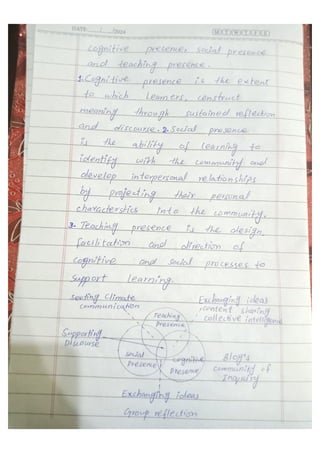 DATE: / /2024
M T W T F S S
cognitive presence, social presence
and teaching presence.
1. Cognitive presence is the extent
to which learners, construct
meaning through sustained reflection
and discourse. 2. Social presence
is the ability of learning to
identify with the community and
develop interpersonal relationships
by projecting their personal
characterstics into the community.
3. Teaching presence is the design,
facilitation and direction of
cognitive and social processes to
support learning.
Seeting Climate
communication
Exchanging ideas
, content sharing
collective intelligence
Teaching
Presence
Supporting
Discourse
social
Presence
cognitive
Presence
Blog's
community of
Inquiry
Exchanging ideas
Group reflection